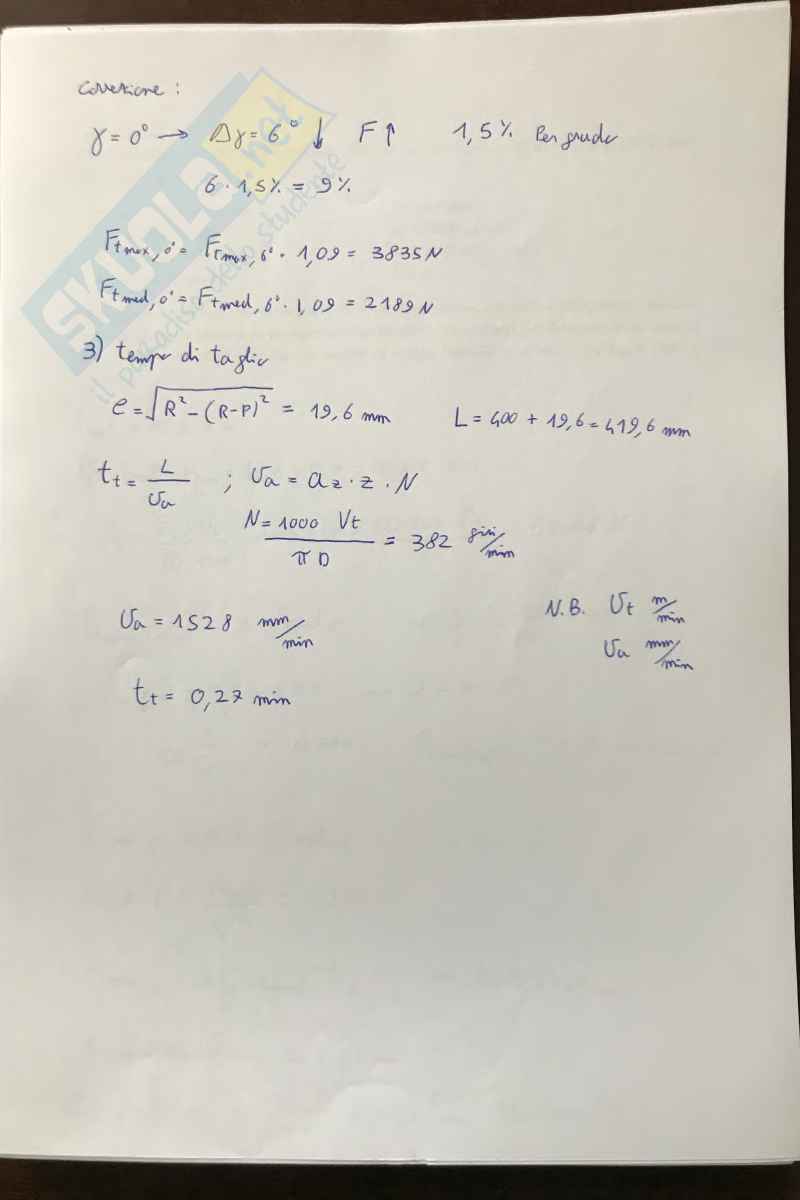 Correzione :
γ = 0° → Δγ = 6° ↓ F ↑ 1,5% Per grado
6 · 1,5% = 9%
Ftmax, 0° = Ftmax, 6° · 1,09 = 3835 N
Ftmed, 0° = Ftmed, 6° · 1,09 = 2189 N
3) tempo di taglio
e = √R² - (R-P)² = 19,6 mm L = 400 + 19,6 = 419,6 mm
tt = L / va ; va = az · z · N
N = 1000 Vt / π D = 382 giri/min
va = 1528 mm/min N.B. vt m/min
va mm/min
tt = 0,27 min
SKUOLA.net
il paradiso dello studente